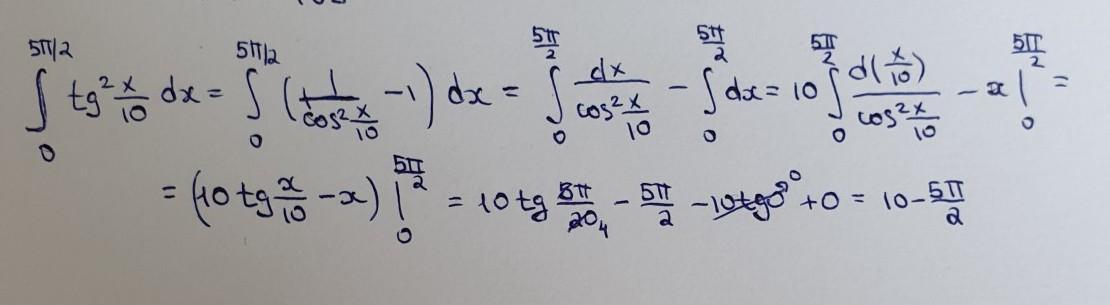 ∫_0^{5π/2} tg² x/10 dx = ∫_0^{5π/2} (1/cos² x/10 − 1) dx = ∫_0^{5π/2} dx/cos² x/10 − ∫_0^{5π/2} dx = 10 ∫_0^{5π/2} d(x/10)/cos² x/10 − x |_0^{5π/2} =
= (10 tg x/10 − x) |_0^{5π/2} = 10 tg 5π/20 4 − 5π/2 − 10 tg 0 0 + 0 = 10 − 5π/2